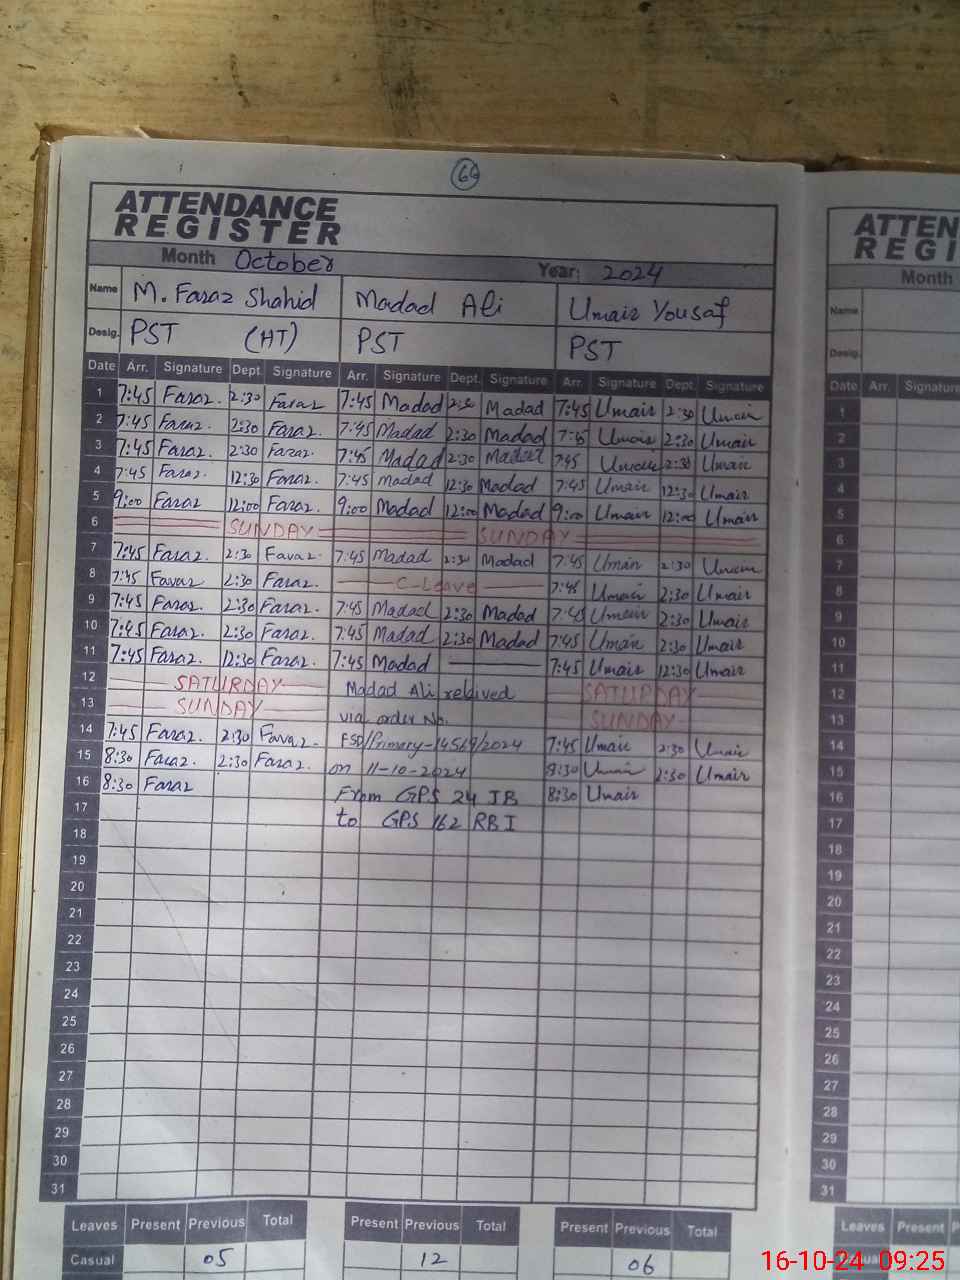 66
ATTENDANCE
REGISTER
Month October Year: 2024
Name M. Faraz Shahid Madad Ali Umair Yousaf
Desig. PST (HT) PST PST
Date Arr. Signature Dept. Signature Arr. Signature Dept. Signature Arr. Signature Dept. Signature
1 7:45 Faraz. 2:30 Faraz 7:45 Madad 2:30 Madad 7:45 Umair 2:30 Umair
2 7:45 Faraz. 2:30 Faraz. 7:45 Madad 2:30 Madad 7:45 Umair 2:30 Umair
3 7:45 Faraz. 2:30 Faraz. 7:45 Madad 2:30 Madad 7:45 Umair 2:30 Umair
4 7:45 Faraz. 12:30 Faraz. 7:45 Madad 12:30 Madad 7:45 Umair 12:30 Umair
5 9:00 Faraz 12:00 Faraz. 9:00 Madad 12:00 Madad 9:00 Umair 12:00 Umair
6 SUNDAY SUNDAY
7 7:45 Faraz. 2:30 Faraz. 7:45 Madad 2:30 Madad 7:45 Umair 2:30 Umair
8 7:45 Faraz 2:30 Faraz. C-Leave 7:45 Umair 2:30 Umair
9 7:45 Faraz. 2:30 Faraz. 7:45 Madad 2:30 Madad 7:45 Umair 2:30 Umair
10 7:45 Faraz. 2:30 Faraz. 7:45 Madad 2:30 Madad 7:45 Umair 2:30 Umair
11 7:45 Faraz. 12:30 Faraz. 7:45 Madad 7:45 Umair 12:30 Umair
12 SATURDAY Madad Ali relived SATURDAY
13 SUNDAY via order No. SUNDAY
14 7:45 Faraz. 2:30 Faraz. FSD/Primary-14569/2024 7:45 Umair 2:30 Umair
15 8:30 Faraz. 2:30 Faraz. on 11-10-2024 8:30 Umair 2:30 Umair
16 8:30 Faraz From GPS 24 JB 8:30 Umair
17 to GPS 162 RB I
18
19
20
21
22
23
24
25
26
27
28
29
30
31
Leaves Present Previous Total Present Previous Total Present Previous Total
Casual 05 12 06
ATTEN
REGI
Month
Name
Desig.
Date Arr. Signature
1
2
3
4
5
6
7
8
9
10
11
12
13
14
15
16
17
18
19
20
21
22
23
24
25
26
27
28
29
30
31
Leaves Present P
16-10-24 09:25